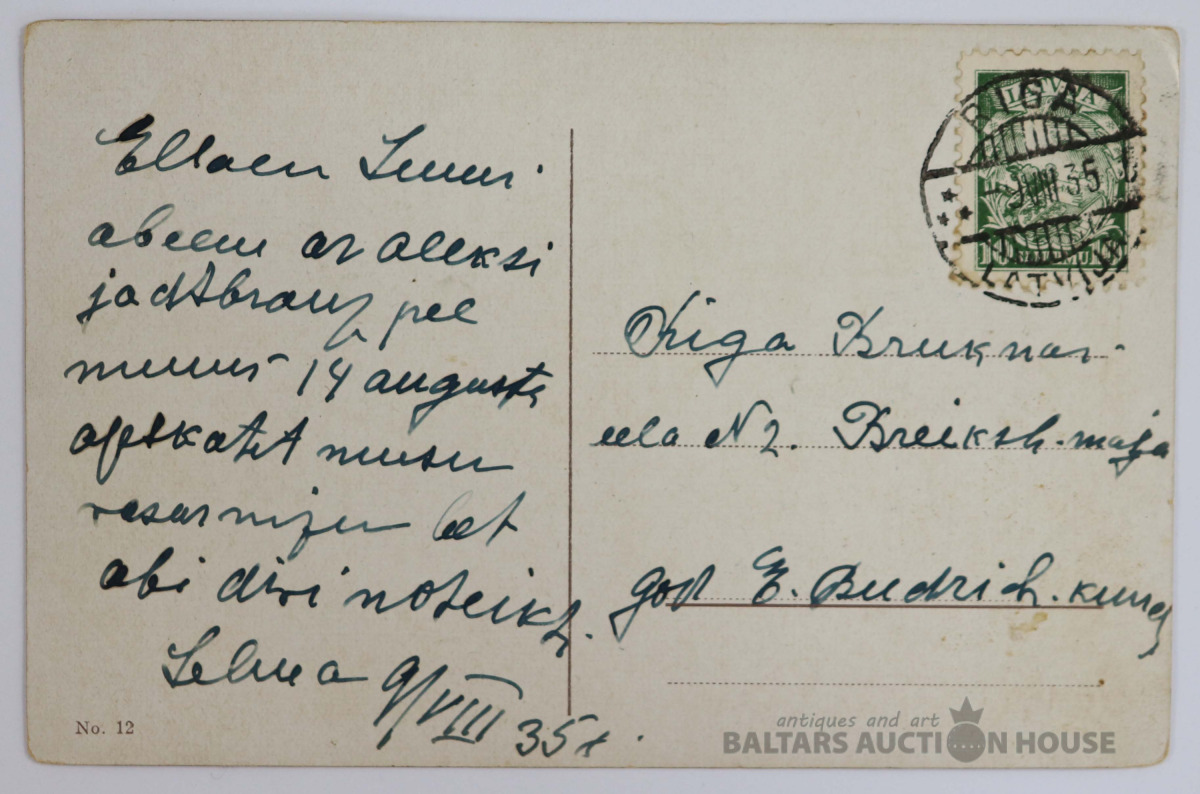 Ellaen Sunni
abeem ar Aleksi
jadtbrauz pee
mums 14 augusta
apskatit musu
vasarniju bet
abi divi noteikt.
Selma 9/VIII 35 .
No. 12
RIGA
VIII 35
LATVIJA
LATVIJA
Riga Bruknas-
eela N 2. Breiksh. maja
god E. Budrich. kung
antiques and art
BALTARS AUCTION HOUSE